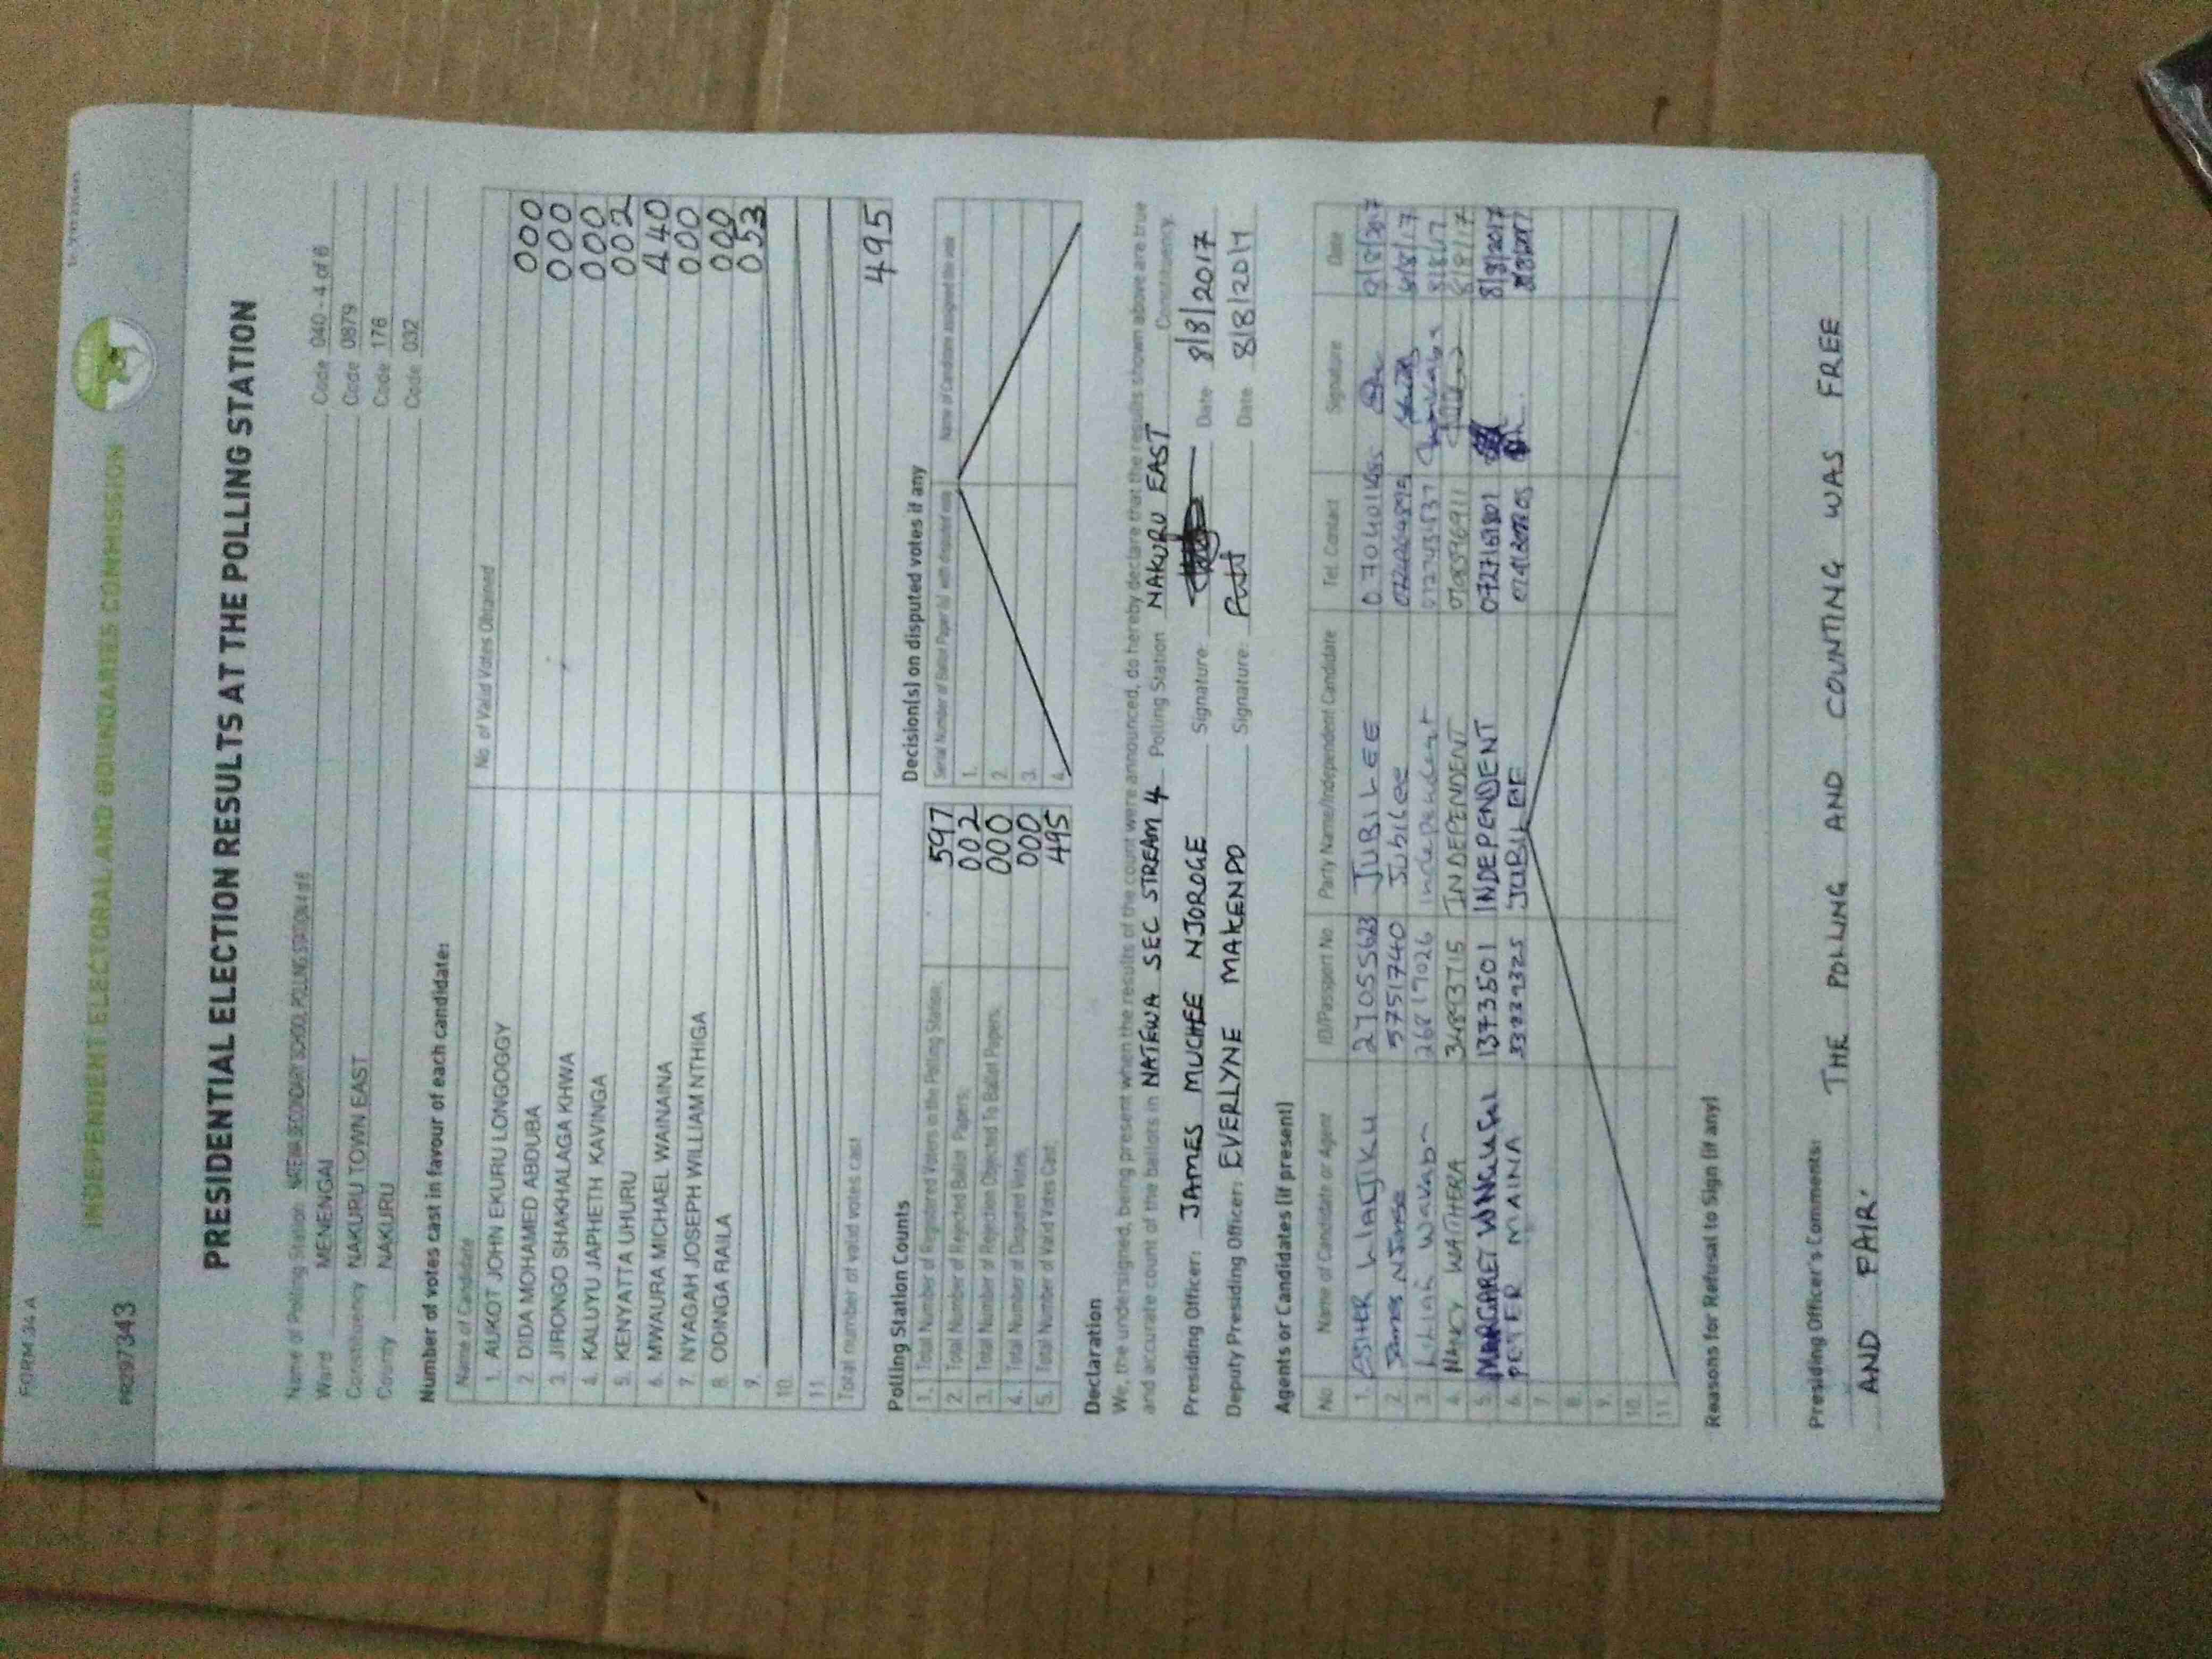 FORM 34 A
INDEPENDENT ELECTORAL AND BOUNDARIES COMMISSION
PR297343
PRESIDENTIAL ELECTION RESULTS AT THE POLLING STATION
Name of Polling Station NATEWA SECONDARY SCHOOL POLLING STATION 4 of 6 Code 040 - 4 of 6
Ward MENENGAI Code 0879
Constituency NAKURU TOWN EAST Code 176
County NAKURU Code 032
Number of votes cast in favour of each candidate:
Name of Candidate No of Valid Votes Obtained
1. AUKOT JOHN EKURU LONGOGGY 000
2. DIDA MOHAMED ABDUBA 000
3. JIRONGO SHAKHALAGA KHWA 000
4. KALUYU JAPHETH KAVINGA 002
5. KENYATTA UHURU 440
6. MWAURA MICHAEL WAINAINA 000
7. NYAGAH JOSEPH WILLIAM NTHIGA 000
8. ODINGA RAILA 053
9.
10.
11.
Total number of valid votes cast 495
Polling Station Counts
1. Total Number of Registered Voters in the Polling Station: 597
2. Total Number of Rejected Ballot Papers: 002
3. Total Number of Rejection Objected To Ballot Papers: 000
4. Total Number of Disputed Votes: 000
5. Total Number of Valid Votes Cast: 495
Decision(s) on disputed votes if any
Serial Number of Ballot Paper (s) with disputed vote Name of Candidate assigned the vote
1.
2.
3.
4.
Declaration
We, the undersigned, being present when the results of the count were announced, do hereby declare that the results shown above are true
and accurate count of the ballots in NATEWA SEC STREAM 4 Polling Station NAKURU EAST Constituency.
Presiding Officer: JAMES MUCHEE NJOROGE Signature: Date 8/8/2017
Deputy Presiding Officer: EVERLYNE MAKENDO Signature: Date 8/8/2017
Agents or Candidates (if present)
No Name of Candidate or Agent ID/Passport No. Party Name/Independent Candidate Tel. Contact Signature Date
1. ESTHER WANJIKU 27055623 JUBILEE 8/8/2017
2. James NJoroge 5751740 Jubilee 8/8/17
3. Lilian 26817026 independent 8/8/17
4. NANCY WAITHERA 34893715 INDEPENDENT 8/8/17
5. MARGARET 1373501 INDEPENDENT 0727161801 8/8/2017
6. PETER MAINA JUBILEE 8/8/2017
7.
8.
9.
10.
11.
Reasons for Refusal to Sign (if any)
Presiding Officer's Comments: THE POLLING AND COUNTING WAS FREE
AND FAIR.